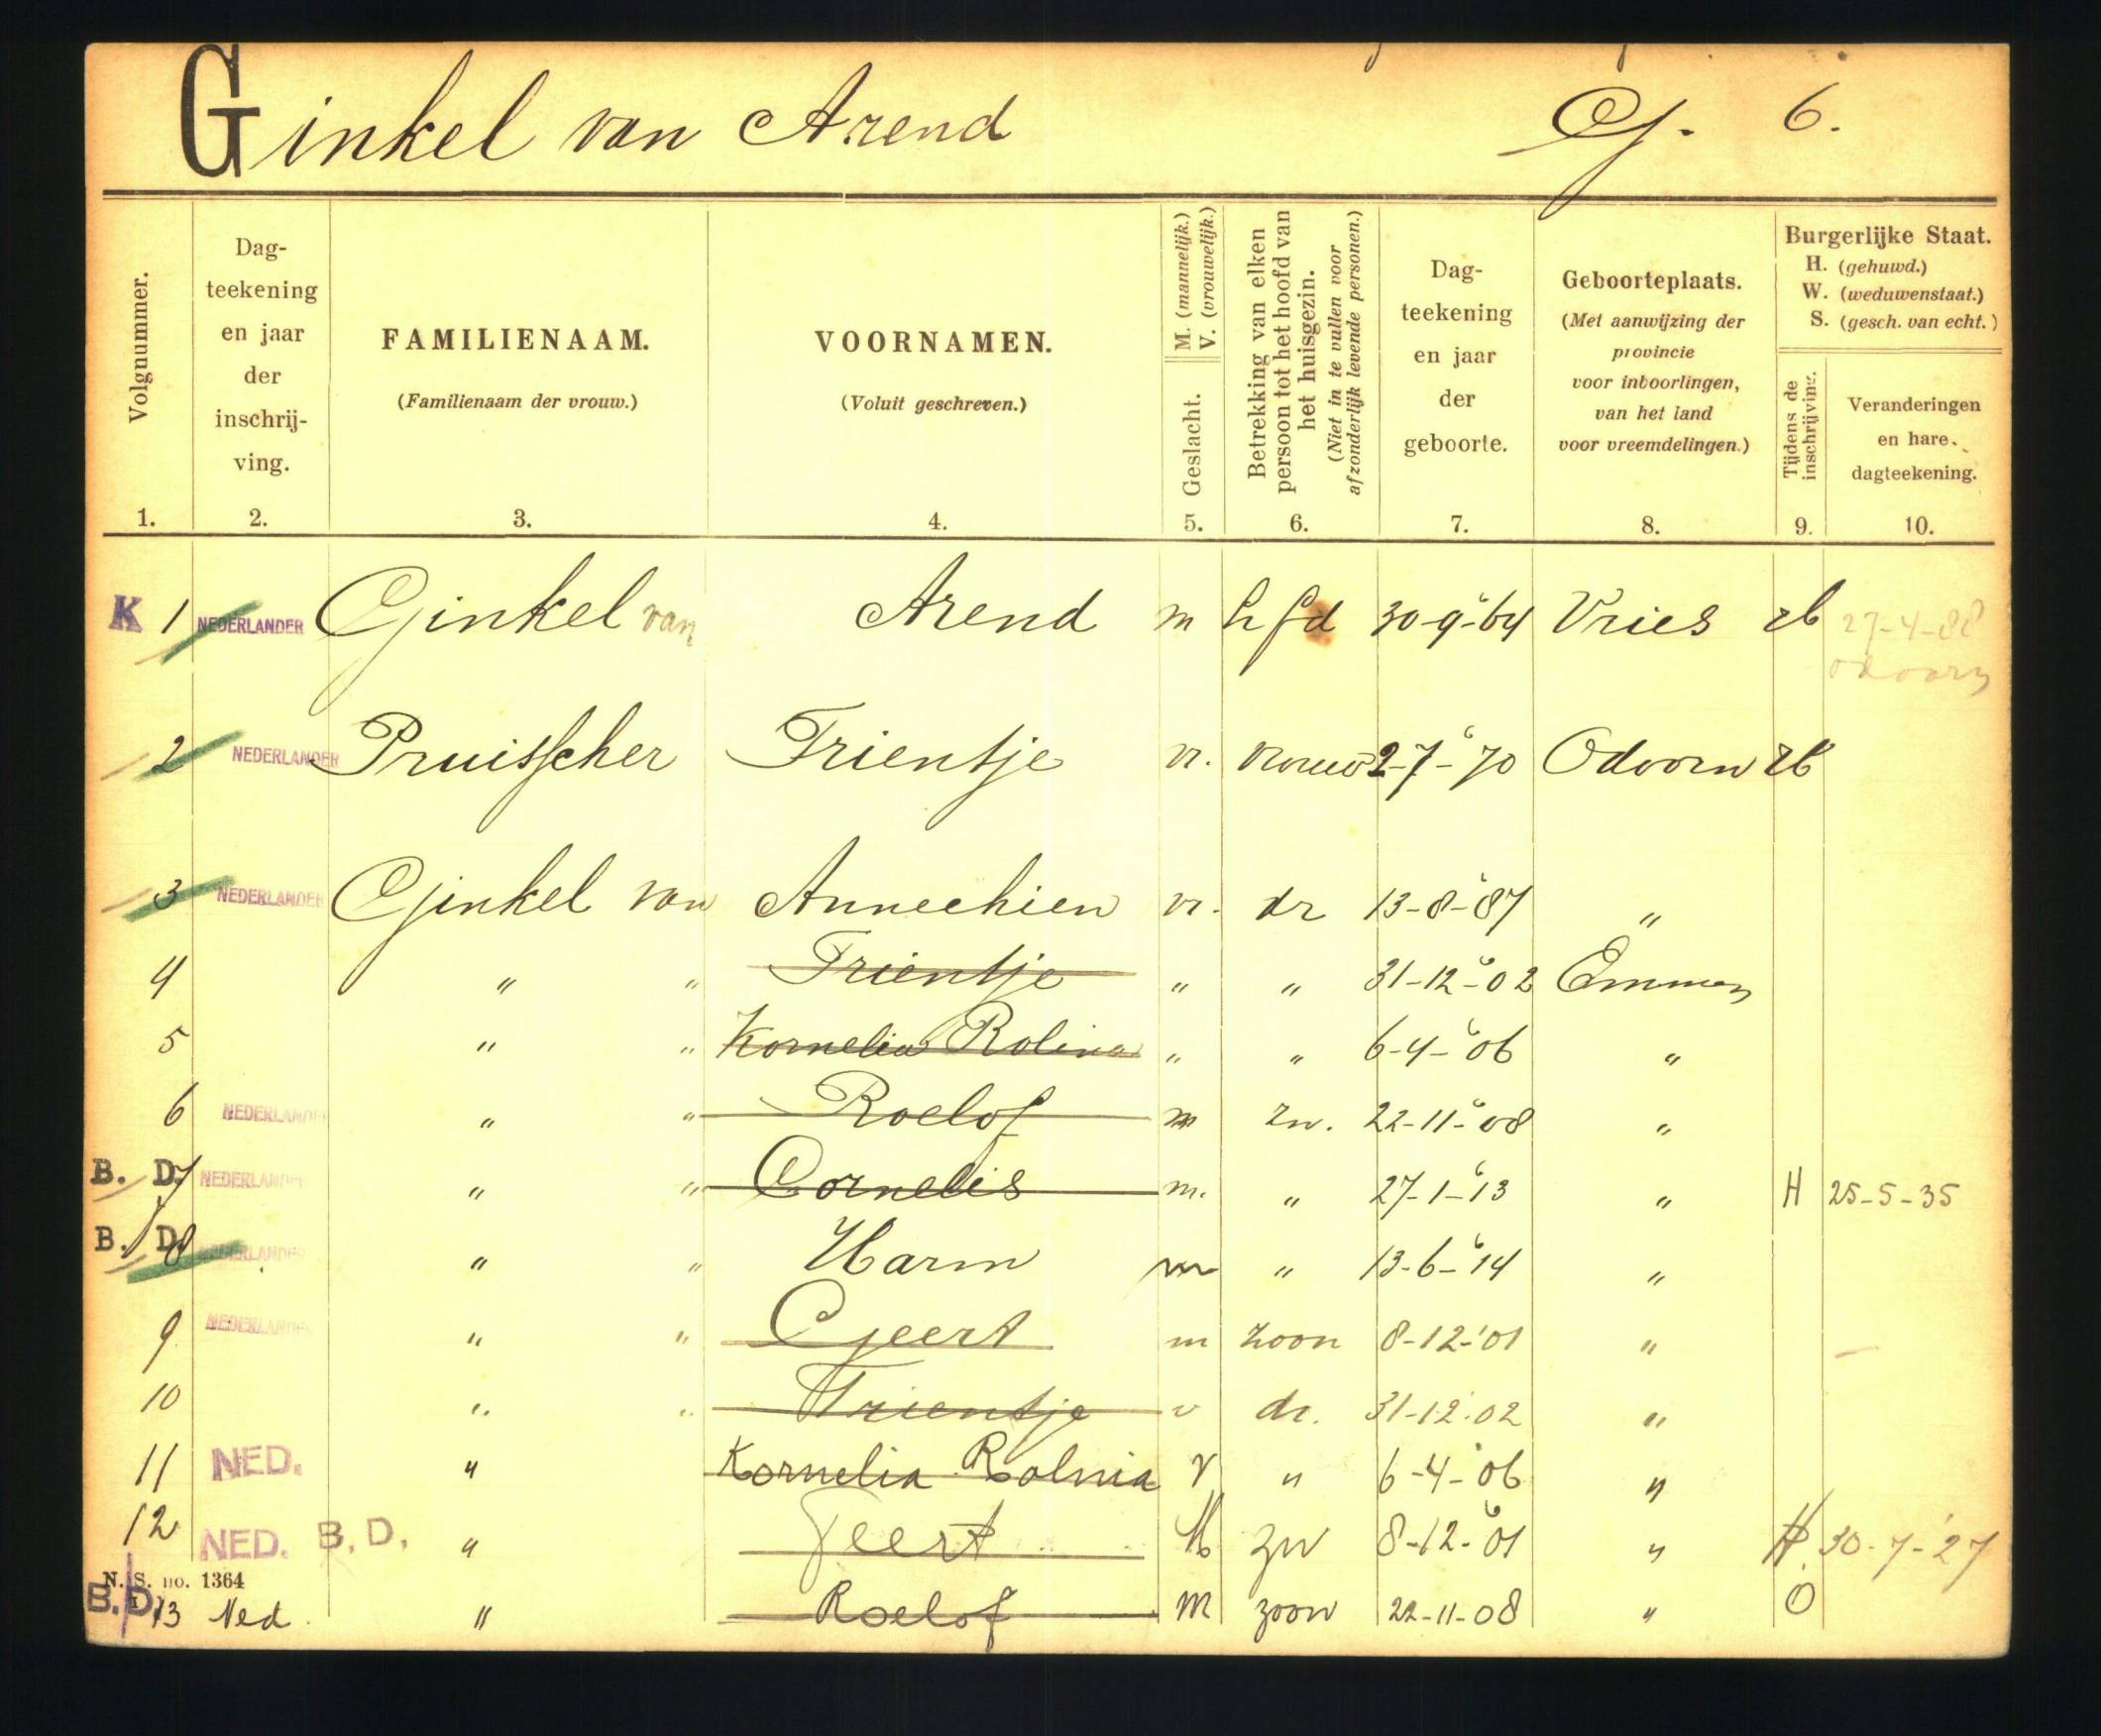 Ginkel van Arend G. 6.
Volgnummer.
Dag-
teekening
en jaar
der
inschrij-
ving.
FAMILIENAAM.
(Familienaam der vrouw.)
VOORNAMEN.
(Voluit geschreven.)
M. (mannelijk.)
V. (vrouwelijk.)
Geslacht.
Betrekking van elken
persoon tot het hoofd van
het huisgezin.
(Niet in te vullen voor
afzonderlijk levende personen.)
Dag-
teekening
en jaar
der
geboorte.
Geboorteplaats.
(Met aanwijzing der
provincie
voor inboorlingen,
van het land
voor vreemdelingen.)
Burgerlijke Staat.
H. (gehuwd.)
W. (weduwenstaat.)
S. (gesch. van echt.)
Tijdens de
inschrijving.
Veranderingen
en hare
dagteekening.
1. 2. 3. 4. 5. 6. 7. 8. 9. 10.
K 1 NEDERLANDER Ginkel van Arend m hfd 30-9-'64 Vries H 27-4-88
Odoorn
2 NEDERLANDER Pruisscher Trientje vr. vrouw 2-7-'70 Odoorn H
3 NEDERLANDER Ginkel van Annechien vr. dr 13-8-'87 "
4 " " Trientje " " 31-12-'02 Emmen
5 " " Kornelia Rolina " " 6-4-'06 "
6 NEDERLANDER " " Roelof m zn. 22-11-'08 "
B. D. 7 NEDERLANDER " " Cornelis m. " 27-1-'13 " H 25-5-35
B. D. 8 NEDERLANDER " " Harm m " 13-6-'14 "
9 NEDERLANDER " " Geert m zoon 8-12-'01 "
10 " " Trientje v dr. 31-12-02 "
11 NED. " Kornelia Rolnia V " 6-4-'06 "
12 NED. B.D. " Geert M zn 8-12-'01 " H. 30-7-'27
N. S. no. 1364
B.D. 13 Ned. " Roelof M zoon 22-11-08 " O